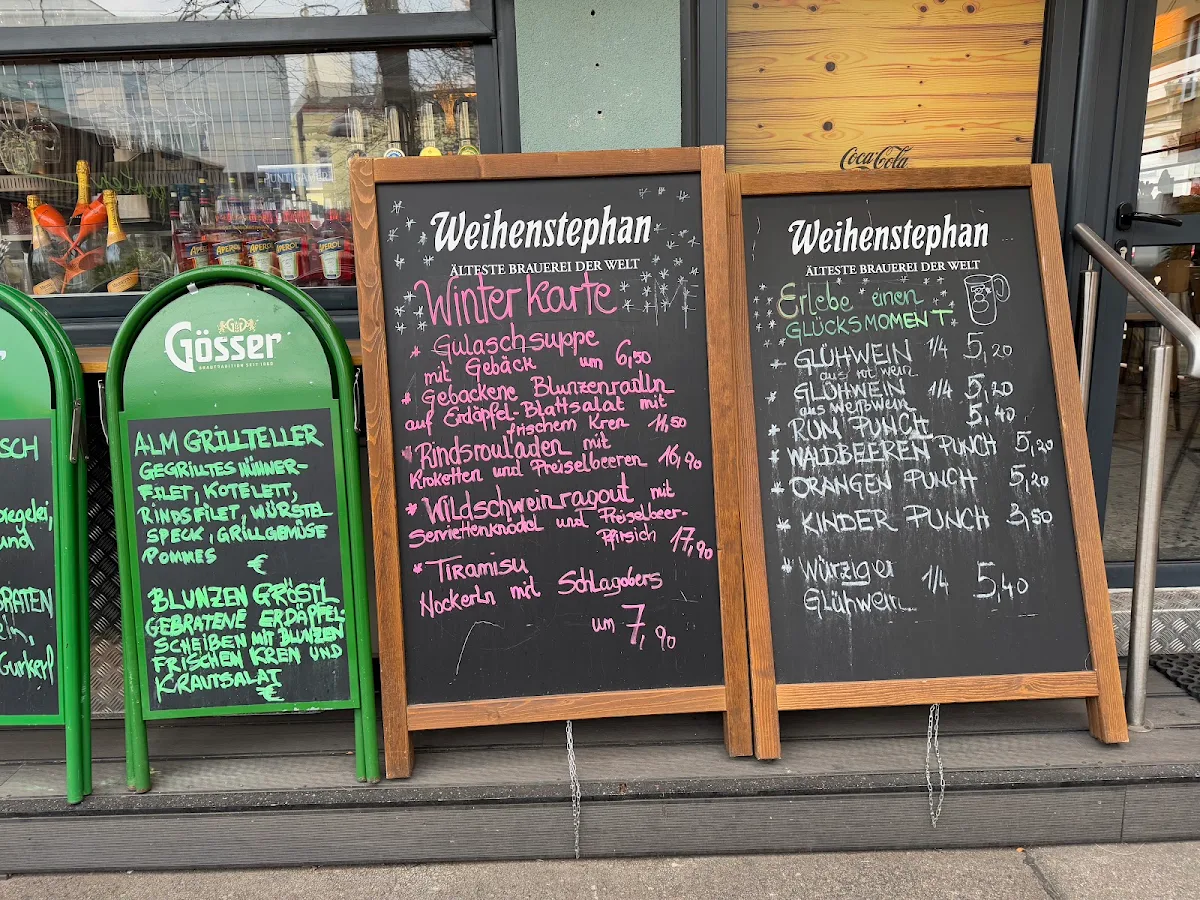 SCH
und
BRATEN
Gurkerl
Gösser
BRAUTRADITION SEIT 1860
ALM GRILLTELLER
GEGRILTES HÜHNER-
FILET, KOTELETT,
RINDSFILET, WÜRSTEL
SPECK, GRILLGEMÜSE
POMMES
€
BLUNZEN GRÖSTL
GEBRATENE ERDÄPFEL
SCHEIBEN MIT BLUNZEN
FRISCHEN KREN UND
KRAUTSALAT
€
PUNTIGAMER
APEROL
APEROL
APEROL
APEROL
APEROL
Weihenstephan
ÄLTESTE BRAUEREI DER WELT
Winterkarte
Gulaschsuppe
mit Gebäck um 6,50
* Gebackene Blunzenradln
auf Erdöpfel-Blattsalat mit
frischem Kren 14,50
* Rindsrouladen mit
Kroketten und Preiselbeeren 16,90
* Wildschweinragout mit
Serviettenknödel und Preiselbeer-
Pfirsich 17,90
* Tiramisu
Nockerln mit Schlagobers
um 7,90
Coca-Cola
Weihenstephan
ÄLTESTE BRAUEREI DER WELT
Erlebe einen
GLÜCKSMOMENT
* GLÜHWEIN 1/4 5,20
aus rot wein
* GLÜHWEIN 1/4 5,20
aus weißwein
* RUM PUNCH 5,40
* WALDBEEREN PUNCH 5,20
* ORANGEN PUNCH 5,20
* KINDER PUNCH 3,50
* Würziger 1/4 5,40
Glühwein